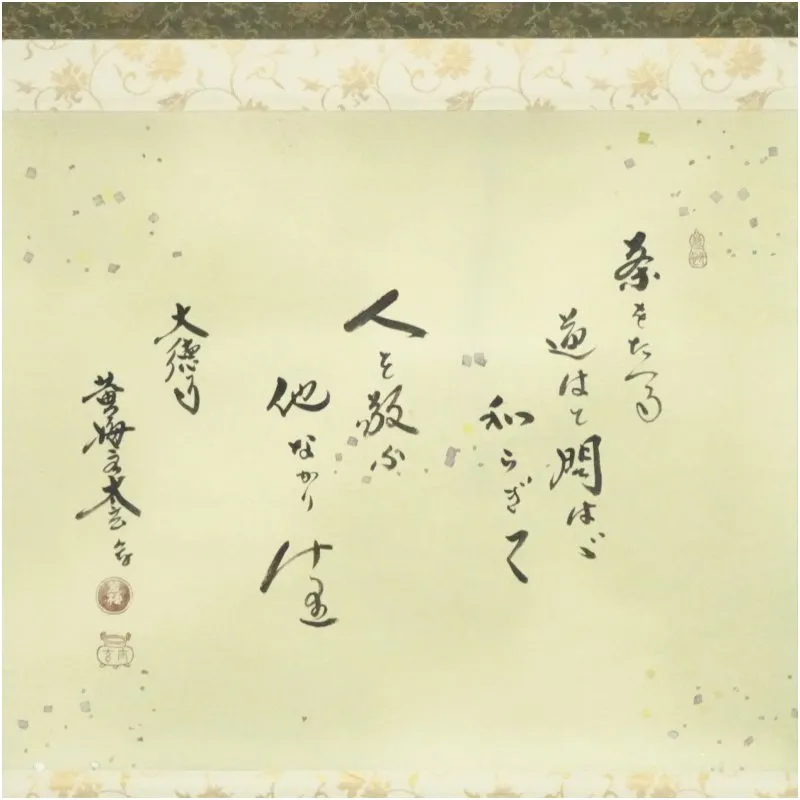 茶をたつる
道はと問はゞ
和らぎて
人を敬ふ
他なかり
けり
大徳
黄梅 太玄